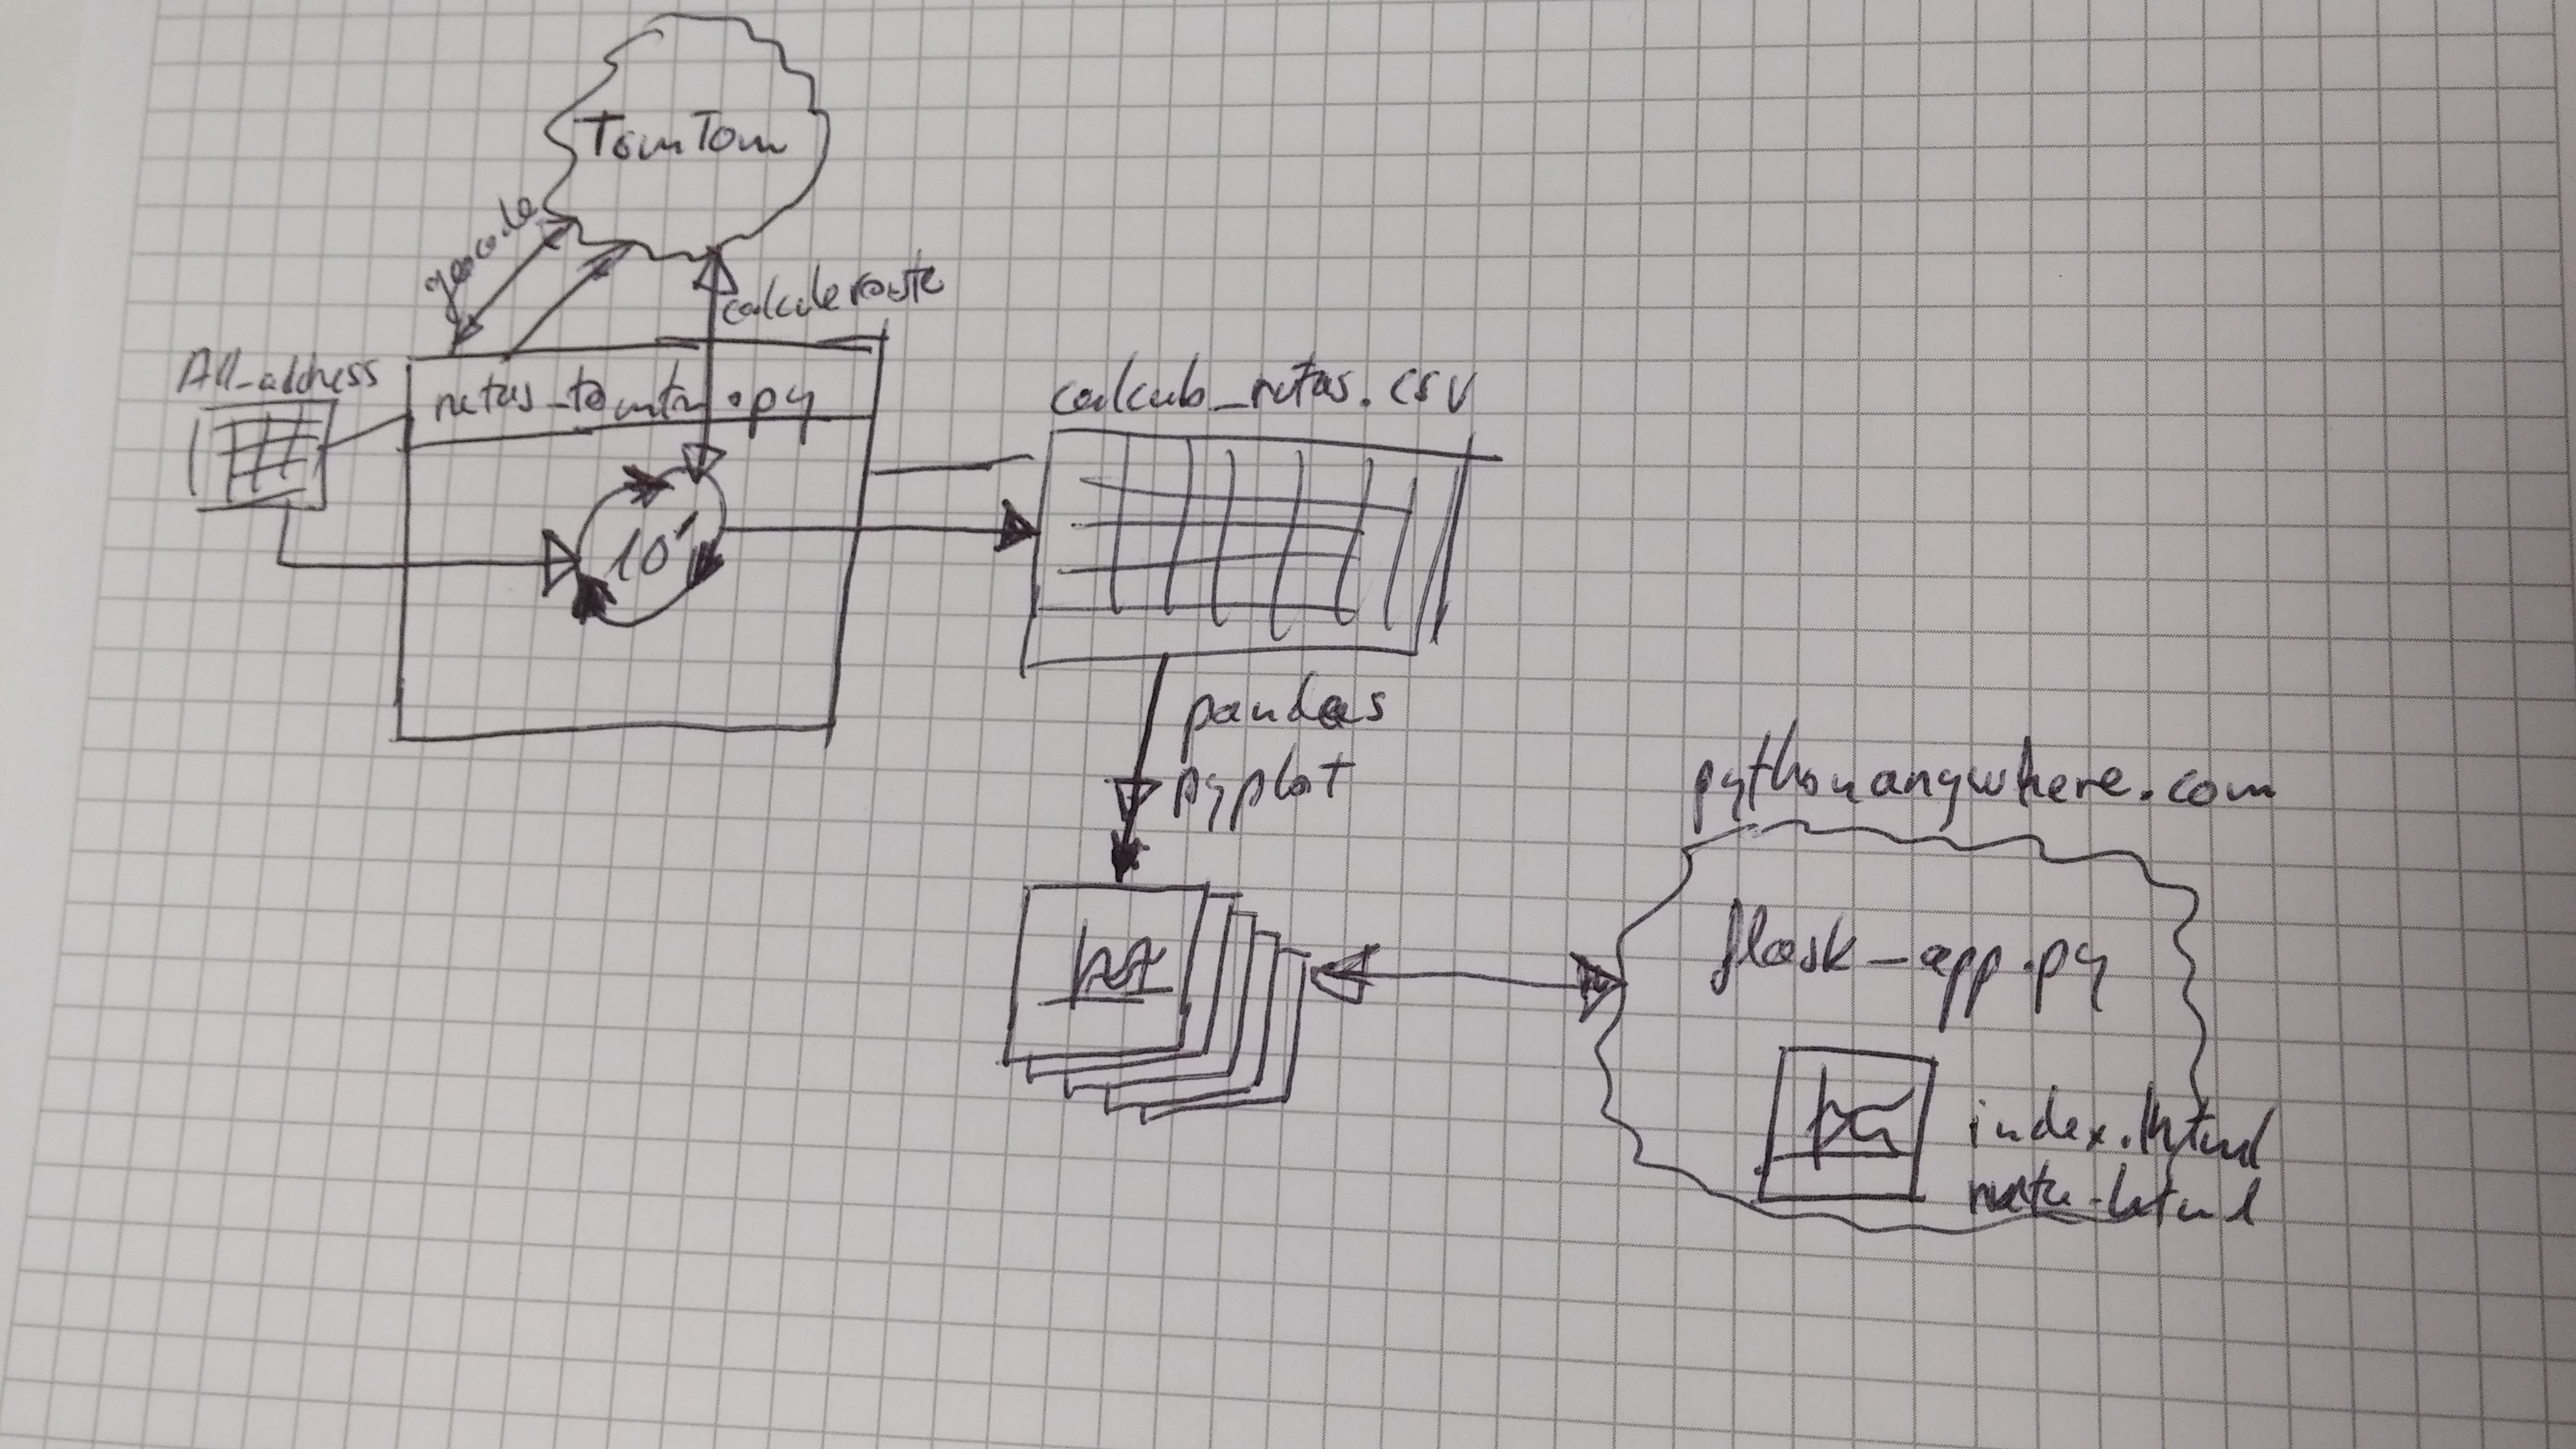 TomTom
geocode
calculeroute
All_address
rutas_tomtm.py
10'
calculo_rutas.csv
pandas
pyplot
pythonanywhere.com
flask_app.py
index.html